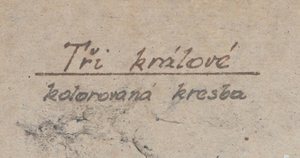 Tři králové
kolorovaná kresba